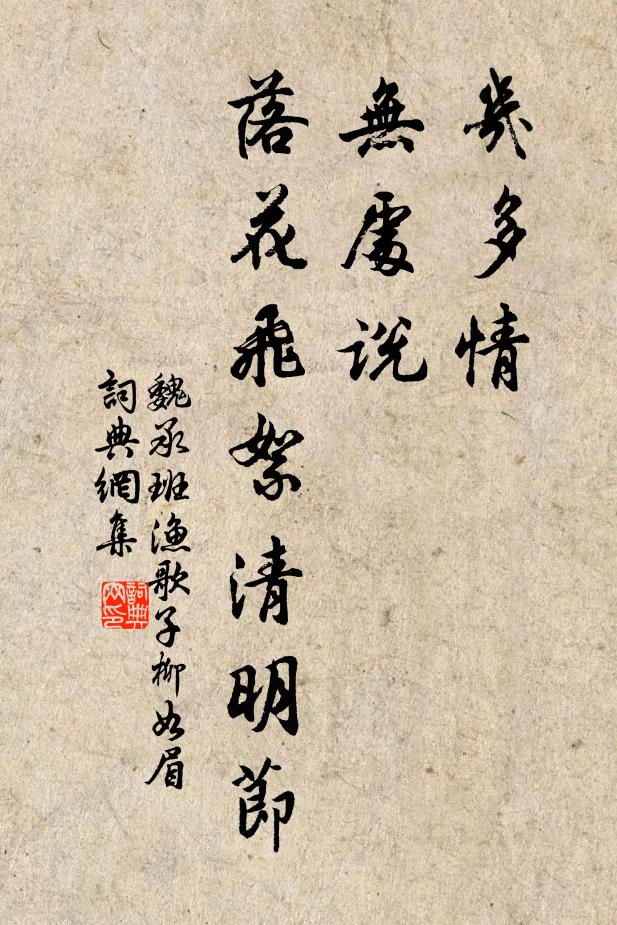 幾多情
無處說
落花飛絮清明節
魏承班漁歌子柳如眉
詞典網集
詞典網印